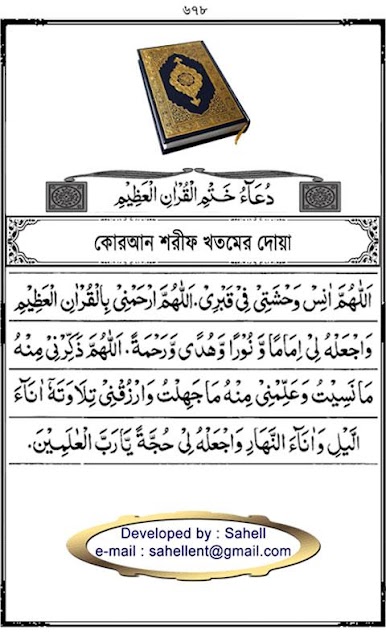 ৬৭৮
دُعَآءُ خَتْمِ الْقُرْاٰنِ الْعَظِيْمِ
কোরআন শরীফ খতমের দোয়া
اَللّٰهُمَّ اٰنِسْ وَحْشَتِيْ فِيْ قَبْرِيْ. اَللّٰهُمَّ ارْحَمْنِيْ بِالْقُرْاٰنِ الْعَظِيْمِ
وَاجْعَلْهُ لِيْ اِمَامًا وَّ نُوْرًا وَّهُدًى وَّرَحْمَةً. اَللّٰهُمَّ ذَكِّرْنِيْ مِنْهُ
مَا نَسِيْتُ وَعَلِّمْنِيْ مِنْهُ مَا جَهِلْتُ وَارْزُقْنِيْ تِلَاوَتَهٗ اٰنَآءَ
الَّيْلِ وَاٰنَآءَ النَّهَارِ وَاجْعَلْهُ لِيْ حُجَّةً يَّا رَبَّ الْعٰلَمِيْنَ.
Developed by : Sahell
e-mail : sahellent@gmail.com